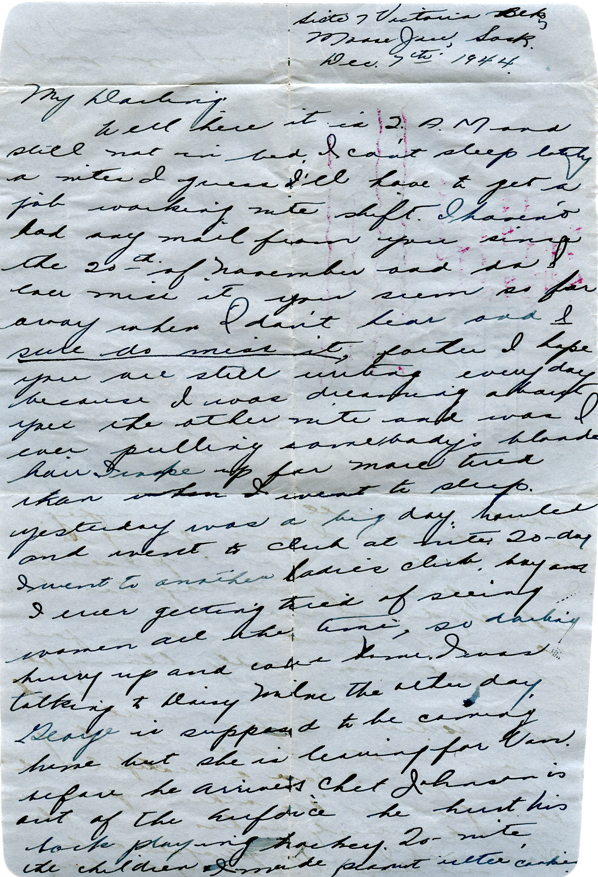 Victoria
Moose Jaw, Sask.
Dec. 7th 1944.
My Darling.
Well here it is 2. A.M and
still not in bed, I can't sleep lately
a nites I guess I'll have to get a
job working nite shift. I haven't
had any mail from you since
the 20th of November and do I
ever miss it you seem so far
away when I don't hear and I
sure do miss it, further I hope
you are still writing everyday
because I was dreaming about
you the other nite and was I
ever pulling somebody's blonde
hair I woke up far more tired
than when I went to sleep.
yesterday was a big day, bowled
and went to club at nite, to-day
I went to another Ladies club, boy am
I ever getting tired of seeing
women all the time, so darling
hurry up and come home. I was
talking to Daisy Milne the other day
George is supposed to be coming
home but she is leaving for Van.
before he arrives Chet Johnson is
out of the airforce he hurt his
back playing hockey. To-nite
the children & I made peanut butter cookies